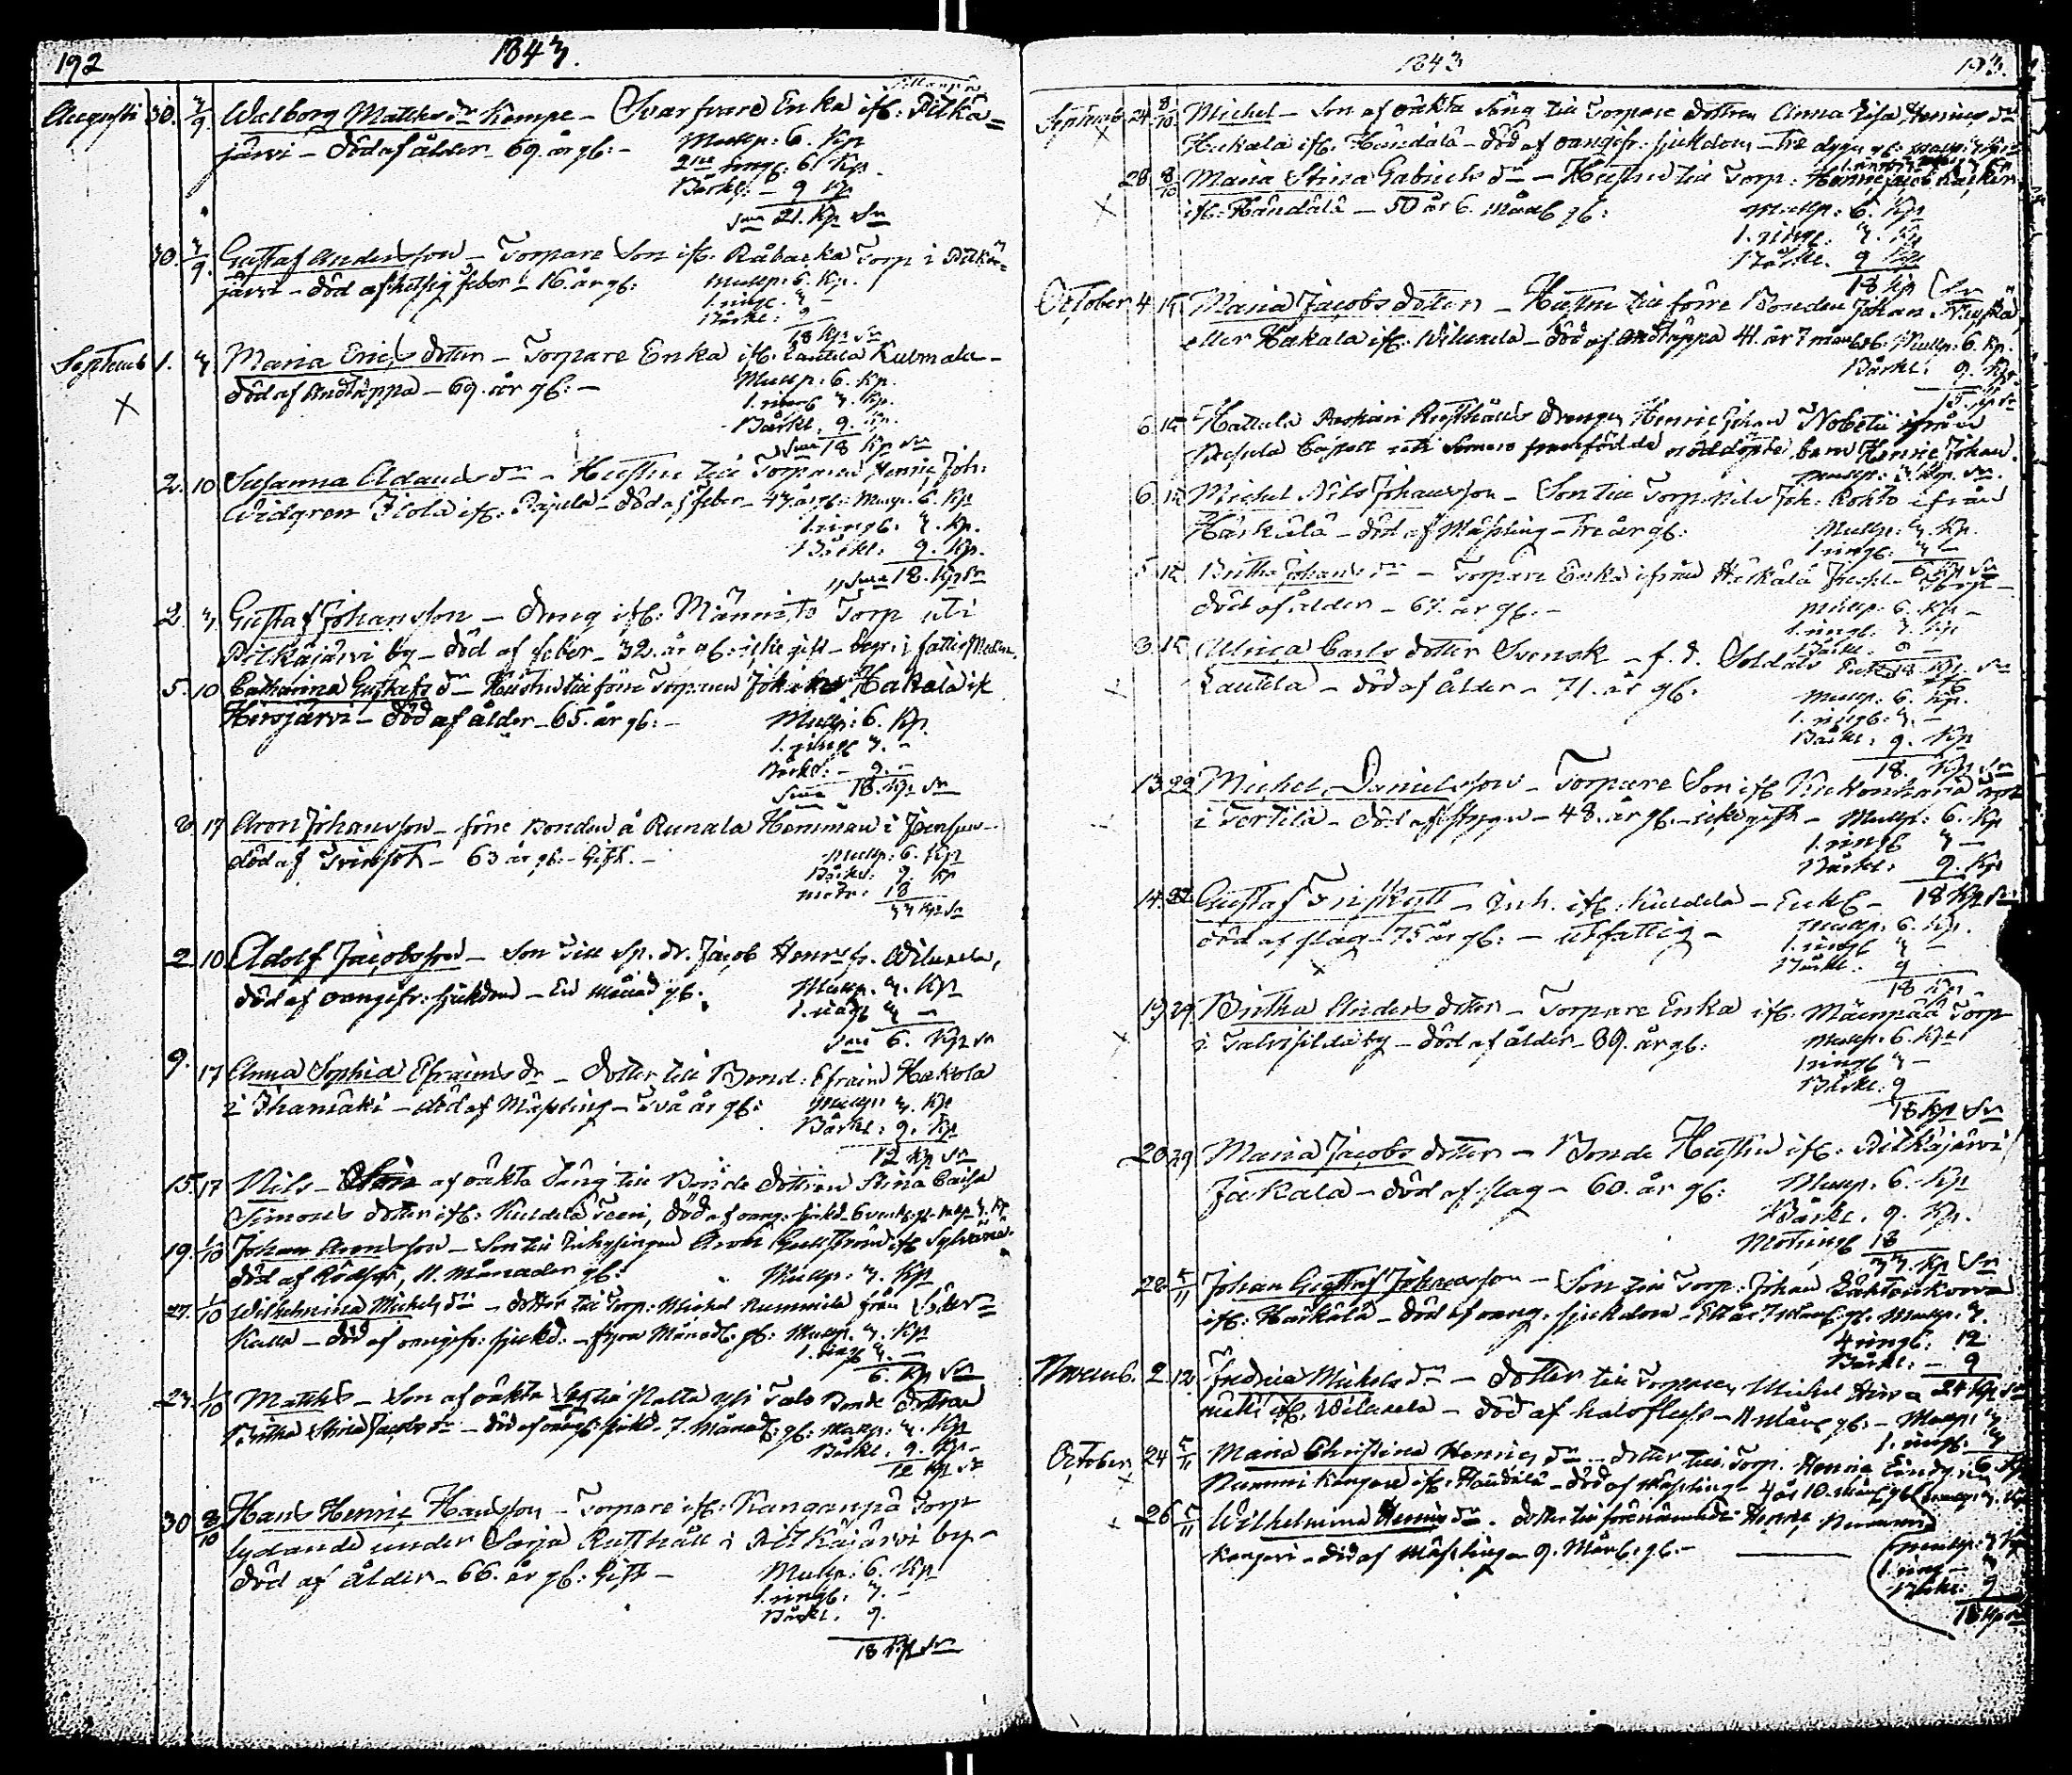 192
1843.
Augusti 30. 3/9. Walborg Matthsdr Kempe – Svarfvare Enka ifr. Pitkä=
järvi – död af ålder – 69. år gl: – Mullp: 6. Kp
2ne ringl: 6. Kp.
Bårkl: – 9 Kp
Sma 21. Kp Sr
30. 3/9. Gustaf Andersson – Torpare Son ifr. Råbacka Torp i Pitkä=
järvi – död af hetsig feber – 16. år gl: Mullp: 6. Kp.
1. ringl. 3 –
Bårkl: 9
18 Kp Sr
Septemb 1. 3. Maria Erics dotter – Torpare Enka ifr. Lautela Kulmala –
död af Andtäppa – 69. år gl: – Mullp: 6. Kp.
1. ringl 3. Kp.
Bårkl. 9. Kp.
Sma 18 Kp Sr
2. 10 Susanna Adamsdr – Hustru till Torparen Henric Joh:
Widgren Isola ifr. Pajula – död af feber – 43. år gl: Mullp. 6. Kp
1. ringl: 3. Kp.
Bårkl: 9. Kp.
Sma 18. Kp Sr
2. 3. Gustaf Johansson – dreng ifr: Männistö Torp uti
Pitkäjärvi by – död af feber – 32. år gl: icke gift – begr: i fattig Medln.
5. 10 Catharina Gustafsdr – Hustru till förre Torparen Johan Hakala ifr
Hirsjärvi – död af ålder – 65. år gl: – Mullp: 6. Kp.
1. ringl 3. –
Bårkl: – 9. –
Sma 18. Kp Sr
17 Aron Johansson – förre Bonden å Runala Hemman i
död af Tvinsot – 63 år gl. – Gift. – Mullp: 6. Kp
Bårkl: 9. Kp
18
33 Kp Sr
2 10 Adolf Jacobsson – Son till Sp. dr. Jacob Henrs fr. Wiluxela,
död af oangifr: sjukdom – En Månad gl. Mullp. 3. Kp
1. ringl 3 –
Sma 6. Kp Sr
9. 17 Anna Sophia Efraimsdr – dotter till Bond: Efraim Hakola
i Ihamäki – död af Mässling – Två år gl: Mullp: 3. Kp
Bårkl: 9. Kp
12 Kp Sr
15. 17 Nils – Son af oäkta säng till Bonde dottren Stina Caisa
Simons dotter ifr: Kuldela
19. 1/10 Johan Aronsson – Son till Inhysingen Aron
död af Rödsot, 11. Månader gl: Mullp: 3. Kp
27. 1/10 Wilhelmina Michelsdr – dotter till Torp: Michel Nummela från
Kulla – död af oangifr: sjukd: – fyra Månad: gl: Mullp. 3. Kp
1. ringl 3. –
6. Kp Sr
23. 1/10 Matths – Son af oäkta säng till Bonde dottren
Britha Stina Jacobsdr – död af oangf: sjukd – 7. Månad: gl: Mullp: 3. Kp
Bårkl. 9. Kp –
12 Kp Sr
30 8/10 Hans Henric Hansson – Torpare ifr: Kangarpä Torp
lydande under Sarja Rusthåll i Pitkäjärvi by –
död af ålder – 66. år gl: Gift – Mullp: 6. Kp
1. ringl: 3. –
Bårkl. 9.
18 Kp Sr
1843
193.
Septemb 24. 8/10 Michel – Son af oäkta säng till Torpare dottren Anna Lisa Henricsdr
Hakala ifr: Händälä – död af oangifr: sjukdom – Tre dygn gl:
28 8/10 Maria Stina Gabrielsdr – Hustru till Torp:
ifr: Händälä – 50 år 6. Mån gl: Mullp: 6. Kp
1. ringl: 3. Kp
Bårkl. 9 Kp
18 Kp Sr
October 4 15 Maria Jacobs dotter – Hustru till förre Bonden Johan
eller Hakala ifr: Wiluxela – död af Andtäppa 41. år 7 mån gl: Mullp: 6. Kp.
Bårkl: 9. Kp
15. Kp Sr
6. 15 Hattula Rusthålls drengen Henric Johan Nobelii ifrån
barn Henric Johan.
Mullp: 3. Kp. Sr.
6 15 Michel Nils Johansson – Son till Torp. Nils Joh: Rokko ifrån
Härkälä – död af Mässling – Tre år gl: Mullp: 3. Kp.
1. ringl: 3 –
6 Kp Sr
5 15 Britha Johansdr – Torpare Enka ifrån Härkälä
död af ålder – 67. år gl: – Mullp: 6. Kp –
1. ringl. 3. Kp
Bårkl. 9 –
18. Kp. Sr
3. 15 Ulrica Carls dotter Svensk – f. d. Soldats Enka
Lautela – död af ålder – 71. år gl: Mullp: 6. Kp.
1. ringl: 3. –
Bårkl: 9. Kp
18. Kp Sr
13. 22 Michel Danielsson – Torpare Son ifr
i Terttilä – död af – 48. år gl. – icke gift – Mullp: 6. Kp
1. ringl 3 –
Bårkl: 9. Kp
18 Kp Sr
14. 22 Gustaf Friskytt – Inh. ifr: Kuldela – Enkl –
död af slag – 75 år gl: – utfattig – Mullp: 6. Kp.
1. ringl 3 –
Bårkl. 9
18 Kp.
19 29 Britha Anders dotter – Torpare Enka ifr: Mäenpää Torp
i Talvisilda by – död af ålder – 89. år gl: Mullp. 6. Kp
1 ringl 3 –
Bårkl. 9
18 Kp Sr
20 29 Maria Jacobs dotter – Bonde Hustru ifr: Pitkäjärvi
Jäkälä – död af slag – 60. år gl: Mullp. 6. Kp
Bårkl. 9. Kp.
18
33. Kp Sr
28 5/11 Johan Gustaf Johansson – Son till Torp: Johan
ifr: Härkälä – död af oang. sjukdom – Mullp. 3.
4 ringl: 12
Bårkl: – 9
24 Kp Sr
Novemb. 2 12 Fredrica Michelsdr – dotter till Torparen Michel
ifr. Wiluxela – död af halsfluss – Mån gl: – Mullp: 3
1. ringl: 3
6 Kp
October 24 5/11 Maria Christina Henricsdr – dotter till Torp. Henric
Nummi Kangare ifr: Händälä – död af Mässling – 4 år 10. Mån gl
26 5/11 Wilhelmina Henricsdr. dotter till förenämnde Henric Nummi
Kangari – död af Mässling – 9. Mån: gl. –
Mullp: 3 Kp
1. ring – 3
Bårkl: 9
18 Kp Sr